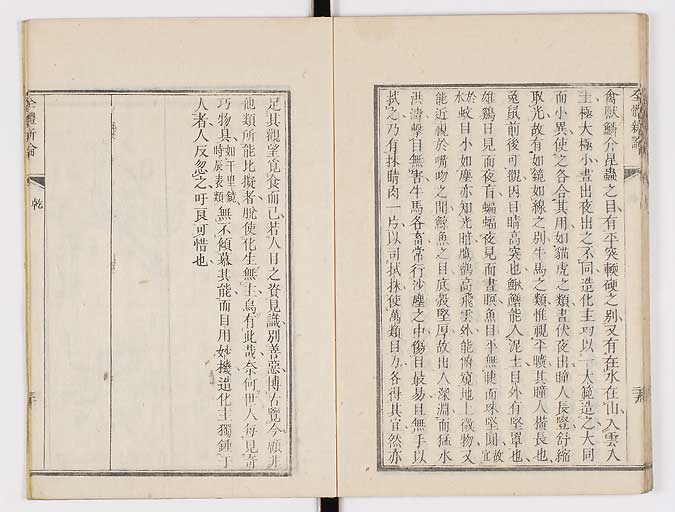 全體新論
禽獸鱗介昆蟲之目有平突輭硬之別又有在水在山入雲入
土極大極小晝出夜出之不同造化主均以一大範造之大同
而小異使之各合其用如貓虎之類晝伏夜出瞳人長豎舒縮
取光故有如鏡如線之別牛馬之類惟視平曠其瞳人橫長也
兔鼠前後可觀因目睛高突也鰍鱔能入泥土目外有堅罩也
雄鷄日見而夜盲蝙蝠夜見而晝瞑魚目平無睫而珠堅圓故宜
於水蚊目小如塵亦知光暗鷹鸇高飛雲外能俯窺地上微物又
能近視於嘴吻之間鯨魚之目底殼堅厚故出入深淵而猛水
洪濤擊目無害牛馬各畜常行沙塵之中傷目最易且無手以
拭之乃有抹睛肉一片以司拭抹使萬類目力各得其宜然亦
足其觀望覓食而已若人目之資見識別善惡博古覽今類非
他類所能比擬者脫使化生無主烏有此哉奈何世人每見奇
巧物具如千里鏡時辰表類無不傾慕其能而目用妙機造化主獨鍾于
人者人反忽之吁良可惜也
全體新論
乾